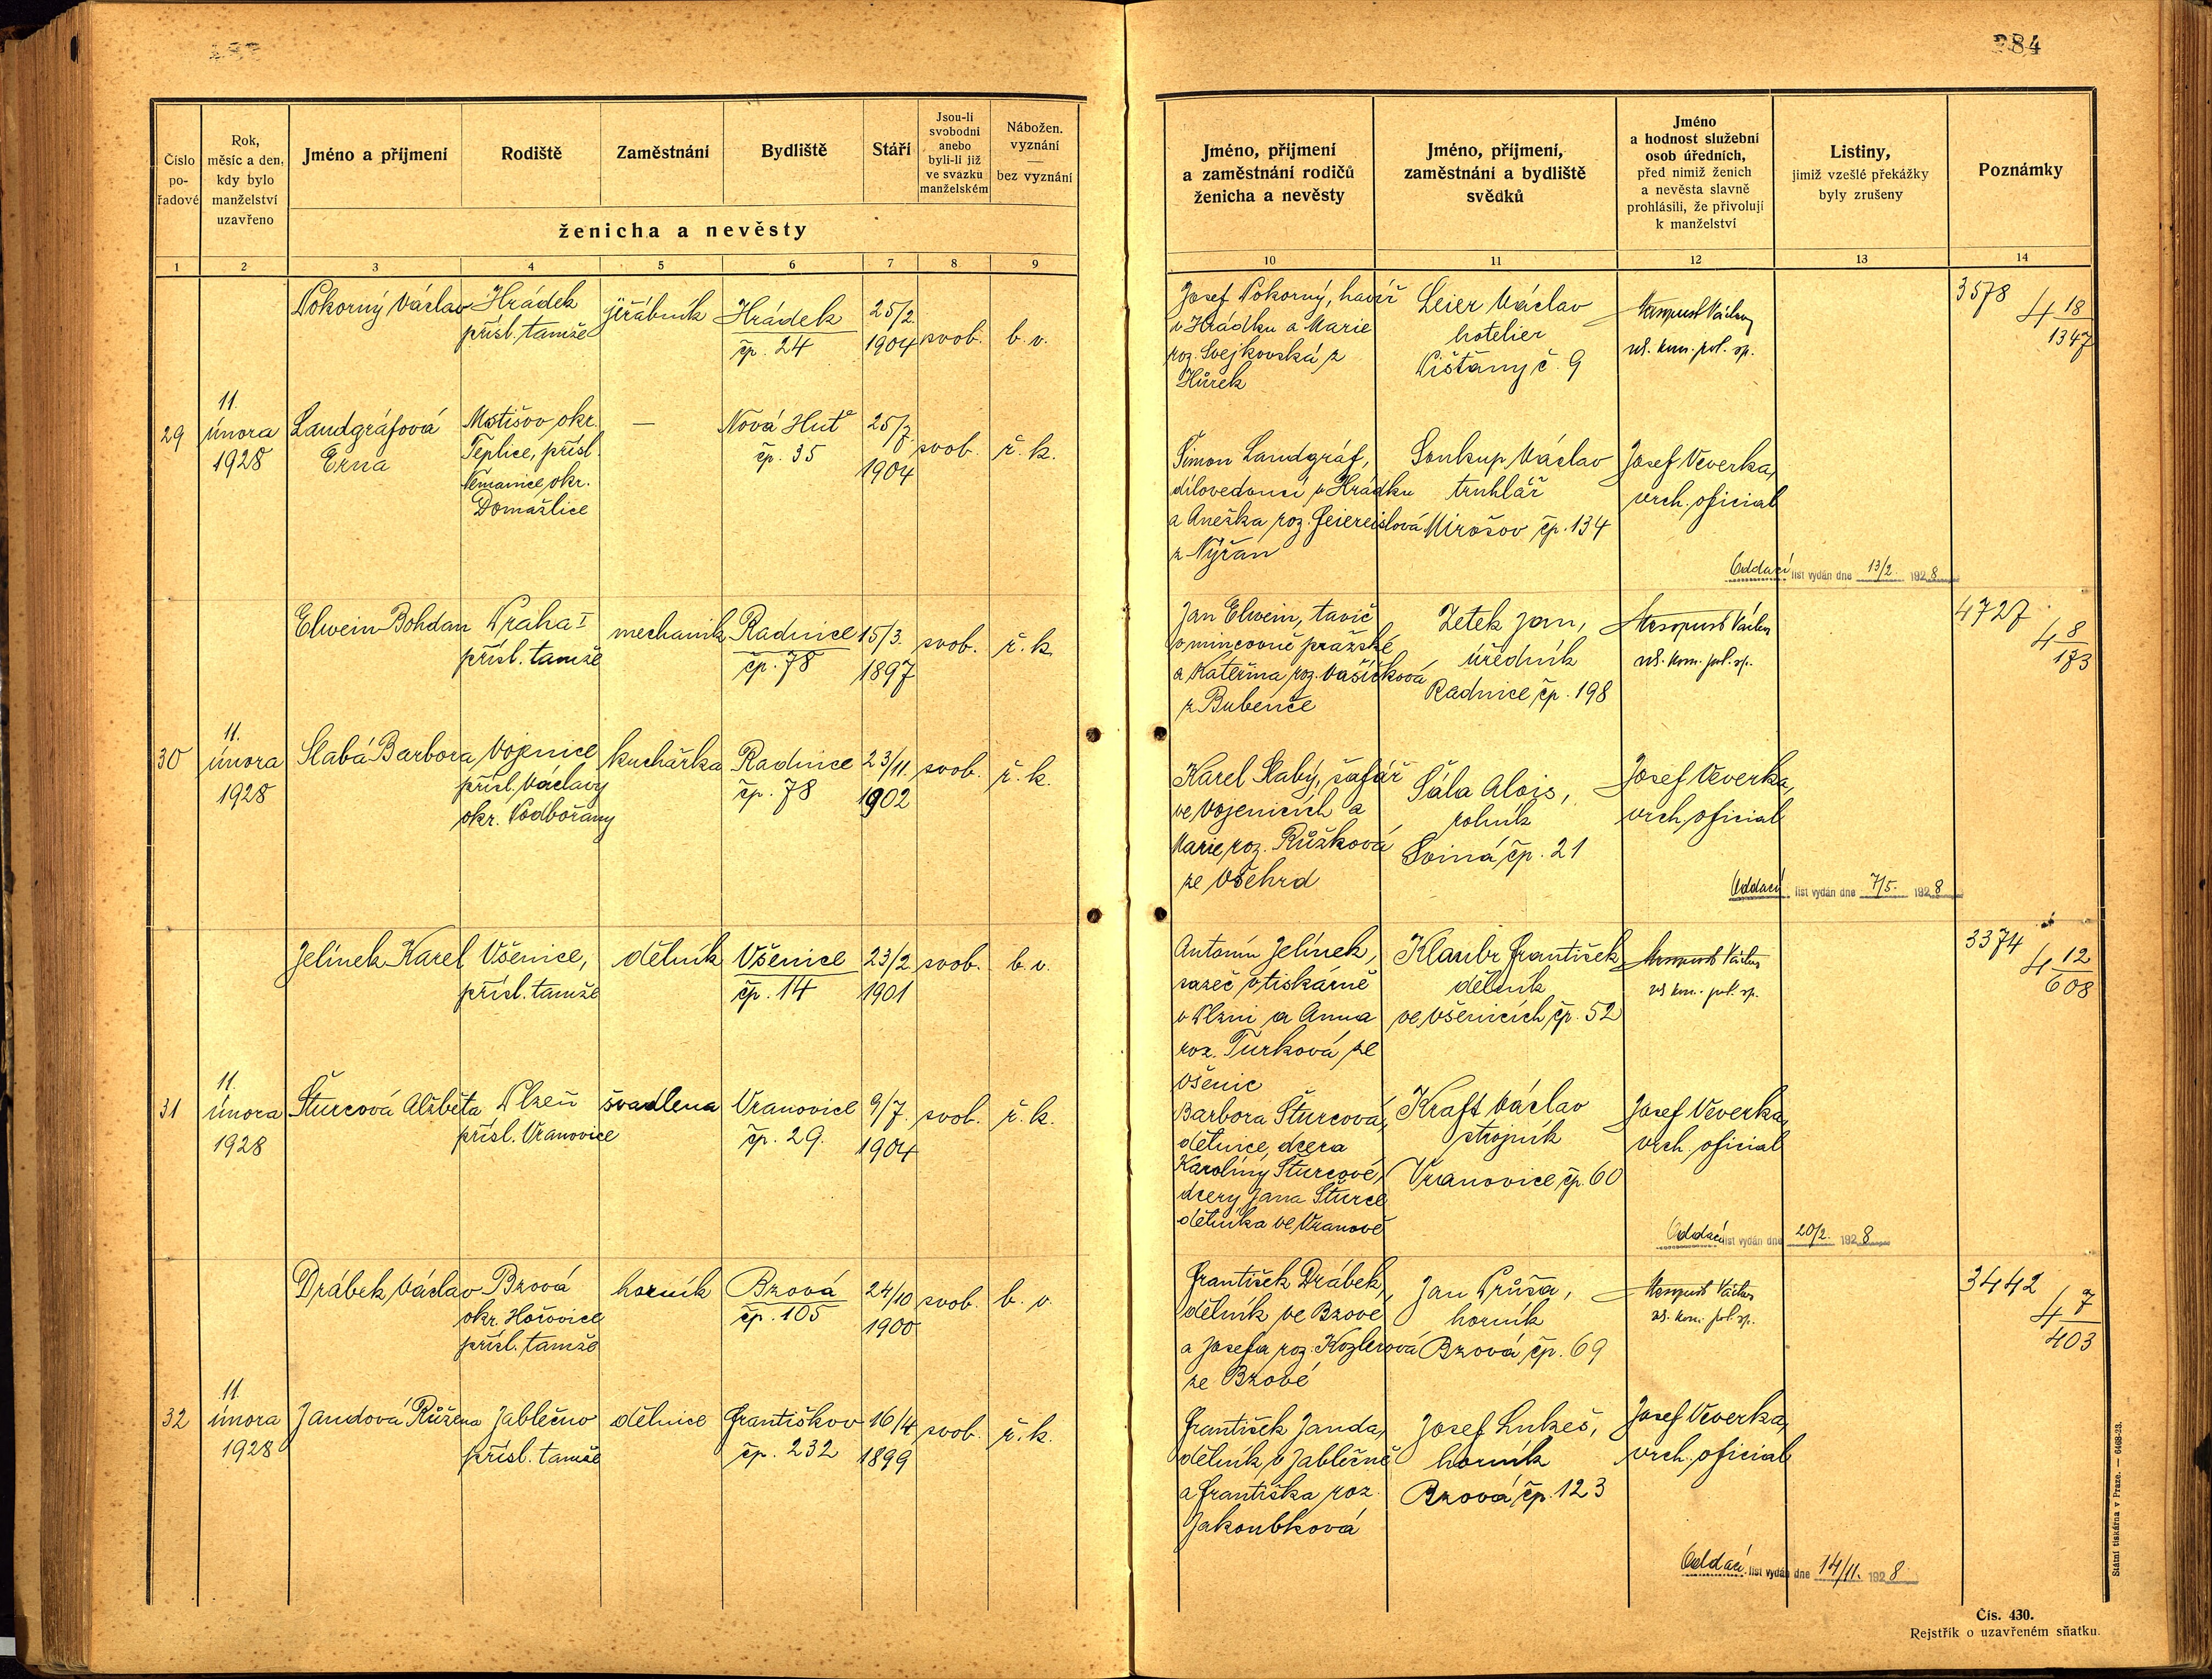 284
Číslo pořadové
Rok, měsíc a den, kdy bylo manželství uzavřeno
Jméno a příjmení
Rodiště
Zaměstnání
Bydliště
Stáří
Jsou-li svobodni anebo byli-li již ve svazku manželském
Nábožen. vyznání — bez vyznání
ženicha a nevěsty
1 2 3 4 5 6 7 8 9
Pokorný Václav Hrádek jeřábník Hrádek 25/2. svob. b. v.
přísl. tamže čp. 24 1904
29 11. února 1928
Landgráfová Motišov okr. — Nová Huť 25/7. svob. ř. k.
Erna Teplice, přísl. čp. 35 1904
Nemanice, okr.
Domažlice
Elwein Bohdan Praha I mechanik Radnice 15/3. svob. ř. k.
přísl. tamže čp. 78 1897
30 11. února 1928
Slabá Barbora Vojenice kuchařka Radnice 23/11. svob. ř. k.
přísl. Václavy čp. 78 1902
okr. Podbořany
Jelínek Karel Všenice, dělník Všenice 23/2 svob. b. v.
přísl. tamže čp. 14 1901
31 11. února 1928
Šturcová Alžběta Plzeň švadlena Vranovice 9/7. svob. ř. k.
přísl. Vranovice čp. 29. 1904
Drábek Václav Bzová horník Bzová 24/10 svob. b. v.
okr. Hořovice čp. 105 1900
přísl. tamže
32 11. února 1928
Jandová Růžena Jablečno dělnice Františkov 16/4 svob. ř. k.
přísl. tamže čp. 232 1899
Jméno, příjmení a zaměstnání rodičů ženicha a nevěsty
Jméno, příjmení, zaměstnání a bydliště svědků
Jméno a hodnost služební osob úředních, před nimiž ženich a nevěsta slavně prohlásili, že přivolují k manželství
Listiny, jimiž vzešlé překážky byly zrušeny
Poznámky
10 11 12 13 14
Josef Pokorný, havíř Leier Václav Václav 3578
v Hrádku a Marie hotelier pol. sp. 4 18/1347
roz. Svejkovská z Pišťany č. 9
Hůrek
Šimon Landgráf, Soukup Václav Josef Veverka,
dílovedoucí v Hrádku truhlář vrch. oficial
a Anežka roz. Feiereislová Mirošov čp. 134
z Nýřan
Oddací list vydán dne 13/2. 1928
Jan Elwein, tavič Zetek Jan, Václav 4727
v mincovně pražské úředník pol. sp. 4 8/173
a Kateřina roz. Vašíčková Radnice čp. 198
z Bubenče
Karel Slabý, šafář Šála Alois, Josef Veverka,
ve Vojenicích a rolník vrch. oficial
Marie roz. Růžková Sviná čp. 21
ze Všehrd
Oddací list vydán dne 7/5. 1928
Antonín Jelínek, Klaubr František Václav 3374
sazeč v tiskárně dělník pol. sp. 4 12/608
v Plzni a Anna ve Všenicích čp. 52
roz. Turková ze
Všenic
Barbora Šturcová, Kraft Václav Josef Veverka,
dělnice, dcera strojník vrch. oficial
Karolíny Šturcové, Vranovice čp. 60
dcery Jana Šturce
dělníka ve Vranově
Oddací list vydán dne 20/2. 1928
František Drábek, Jan Průša, Václav 3442
dělník ve Bzové horník pol. sp. 4 7/403
a Josefa roz. Kozlerová Bzová čp. 69
ze Bzové
František Janda, Josef Lukeš, Josef Veverka,
dělník v Jablečně horník vrch. oficial
a Františka roz. Bzová čp. 123
Jakoubková
Oddací list vydán dne 14/11. 1928
Státní tiskárna v Praze. — 6468-23.
Čís. 430.
Rejstřík o uzavřeném sňatku.